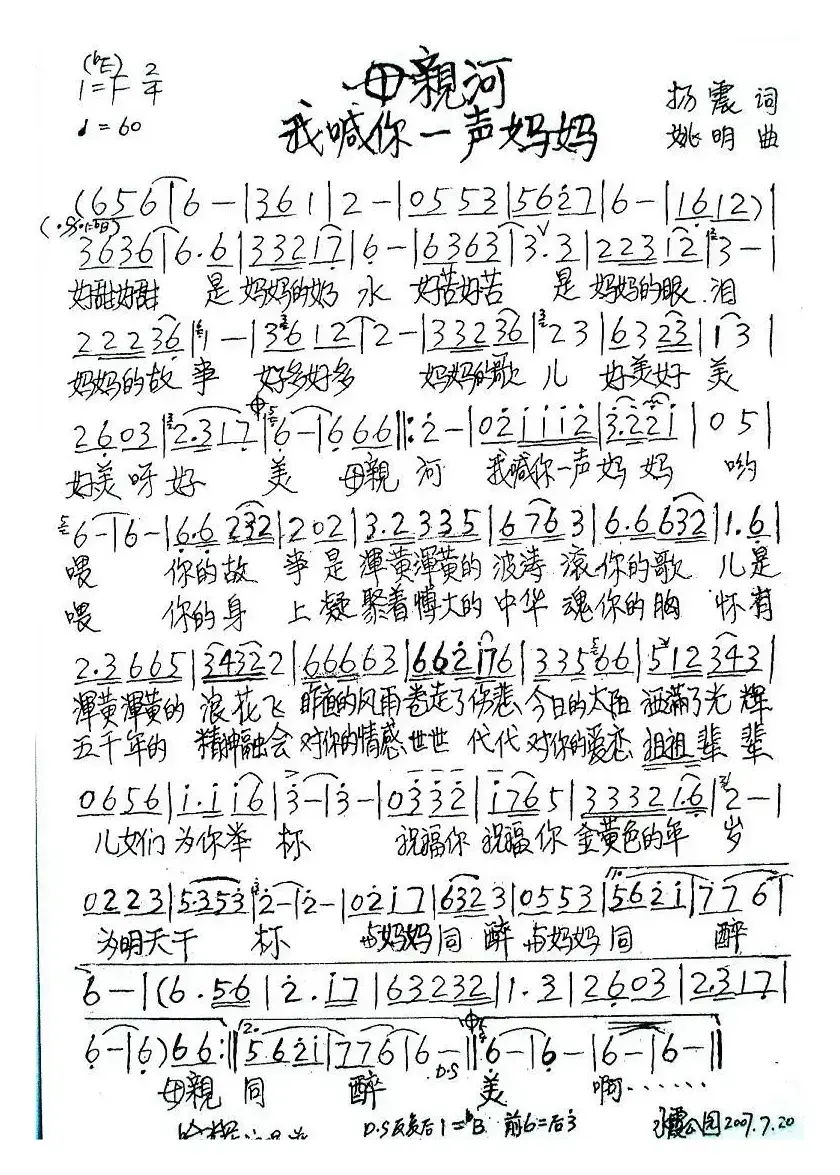 (♭E)
1=F 2/4
♩=60
母親河
我喊你一声妈妈
扬震词
姚明曲
(656|6-|361|2-|0553|5627|6-|1612)|
3636|6.6|33217|6-|6363|3.3|22312|3-|
好甜好甜 是 妈妈的奶 水 好苦好苦 是 妈妈的眼 泪
22236|1-|3612|2-|33236|23|6323|13|
妈妈的故 事 好多好多 妈妈的歌 儿 好美好 美
2603|2.317|6-|666||:2-|021112|3.221|05|
好美呀好 美 母親 河 我喊你一声妈 妈 哟
6-|6-|6.6232|202|3.2335|6763|6.6632|1.6|
喂 你的故 事是 渾黄渾黄的 波涛 滚你的歌 儿是
喂 你的身 上凝 聚着博大的 中华 魂你的胸 怀有
2.3665|34322|66663|662176|33566|512343|
渾黄渾黄的 浪花飞 昨夜的风雨卷走了伤悲 今日的太阳 洒满了光 輝
五千年的 精神融会 对你的情感世世 代代 对你的爱恋 祖祖辈 辈
0656|1.116|3-|3-|0332|1765|333216|2-|
儿女们 为你举 杯 祝福你 祝福你 金黄色的年 岁
0223|5353|2-|2-|0217|6323|0553|5621|776|
为明天干 杯 与妈妈同 醉 与妈妈同 醉
6-|(6.56|2.17|63232|1.3|2603|2.317|
6-|6)66:||5621|776|6-||6-|6-|6-|6-||
D.S
母親 同 醉 美 啊……
D.S反复后1=♭B 前6=后3
公园2007.7.20